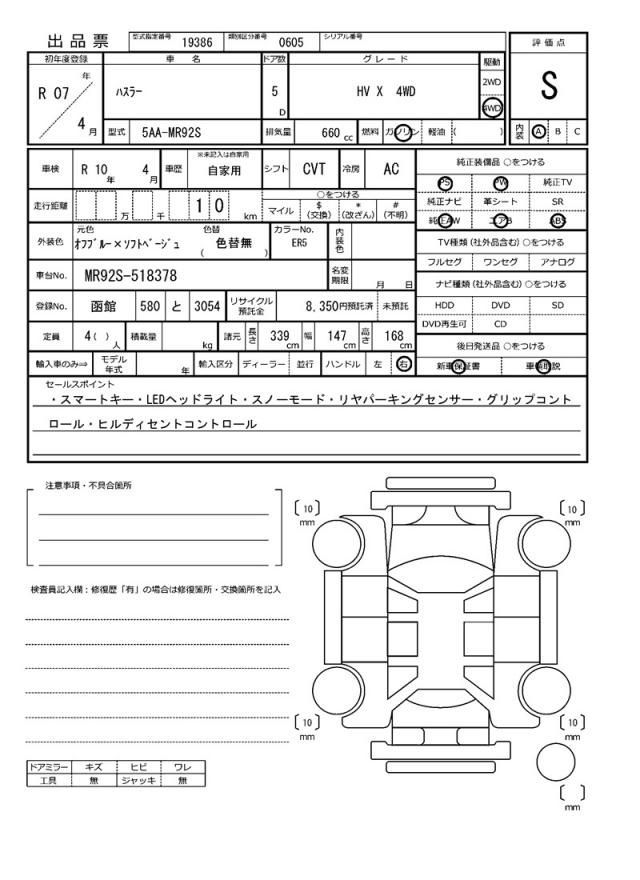 出品票 型式指定番号 19386 類別区分番号 0605 シリアル番号
初年度登録 車名 ドア数 グレード 駆動 評価点
R 07 年 4 月 ハスラー 5 D HV X 4WD 2WD 4WD S
型式 5AA-MR92S 排気量 660 cc 燃料 ガソリン 軽油 ( ) 内装 A B C
車検 R 10 年 4 月 車歴 ※未記入は自家用 自家用 シフト CVT 冷房 AC
走行距離 万 千 1 0 km ○をつける マイル $ (交換) * (改ざん) # (不明)
外装色 元色 オフブルー×ソフトベージュ 色替 ( 色替無 ) カラーNo. ER5 内装色
車台No. MR92S-518378 名変期限 月 日
登録No. 函館 580 と 3054 リサイクル預託金 8,350円預託済 未預託
定員 4( ) 人 積載量 kg 諸元 長さ 339 cm 幅 147 cm 高さ 168 cm
輸入車のみ⇒ モデル年式 年 輸入区分 ディーラー 並行 ハンドル 左 右
純正装備品 ○をつける
PS PW 純正TV
純正ナビ 革シート SR
純正AW エアB ABS
TV種類 (社外品含む) ○をつける
フルセグ ワンセグ アナログ
ナビ種類 (社外品含む) ○をつける
HDD DVD SD
DVD再生可 CD
後日発送品 ○をつける
新車保証書 車輌取説
セールスポイント
・スマートキー・LEDヘッドライト・スノーモード・リヤパーキングセンサー・グリップコント
ロール・ヒルディセントコントロール
注意事項・不具合箇所
検査員記入欄：修復歴「有」の場合は修復箇所・交換箇所を記入
〔 10 〕 mm
〔 10 〕 mm
〔 10 〕 mm
〔 10 〕 mm
〔 〕 mm
ドアミラー キズ ヒビ ワレ
工具 無 ジャッキ 無